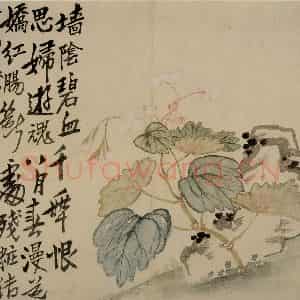 墙陰碧血千年恨
思婦遊魂八月春漫
嬌紅腸斷處殘粧
Shufawang.CN